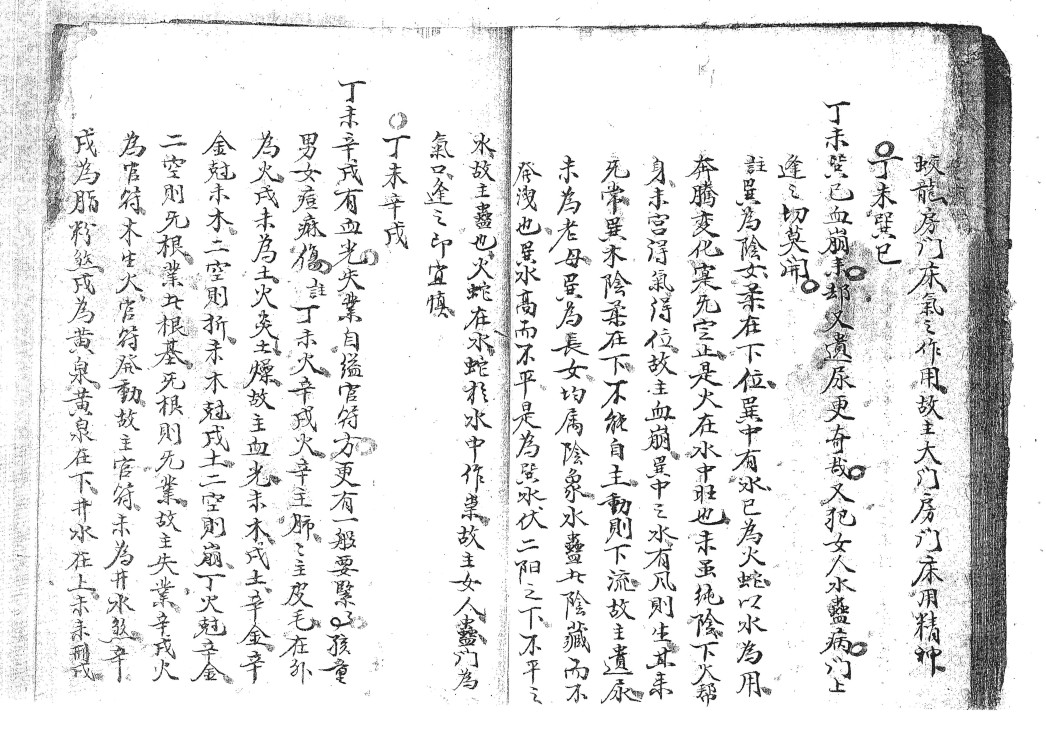 蛟龍房门床氣之作用故主大门房门床用精神
丁未巽巳
丁未巽巳血崩来却又遺尿更奇哉又犯女人水蠱病门上
逢之切莫開
註巽為陰女柔在下位巽中有水巳為火蛇以水為用
奔騰变化寔无定止是火在水中旺也未虽純陰下火帮
身未宮得氣得位故主血崩巽中之水有风則生其未
死常巽木陰柔在下不能自主動則下流故主遺尿
未為老母巽為長女均属陰象水蠱共陰藏而不
發洩也巽水高而不平是為巽水伏二阳之下不平之
水故主蠱也火蛇在水蛇於水中作祟故主女人蠱门為
氣口逢之即宜慎
丁未辛戌
丁未辛戌有血光失業自縊官符方更有一般要緊了孩童
男女痘麻傷註丁未火辛戌火辛主肺之主皮毛在外
為火戌未為土火炎土燥故主血光未木戌土辛金辛
金尅未木二空則折未木尅戌土二空則崩丁火尅辛金
二空則无根業共根基无根則无業故主失業辛戌火
為官符木生火官符發動故主官符未為井水煞辛
戌為脂粉煞戌為黃泉黃泉在下井水在上未未刑戌